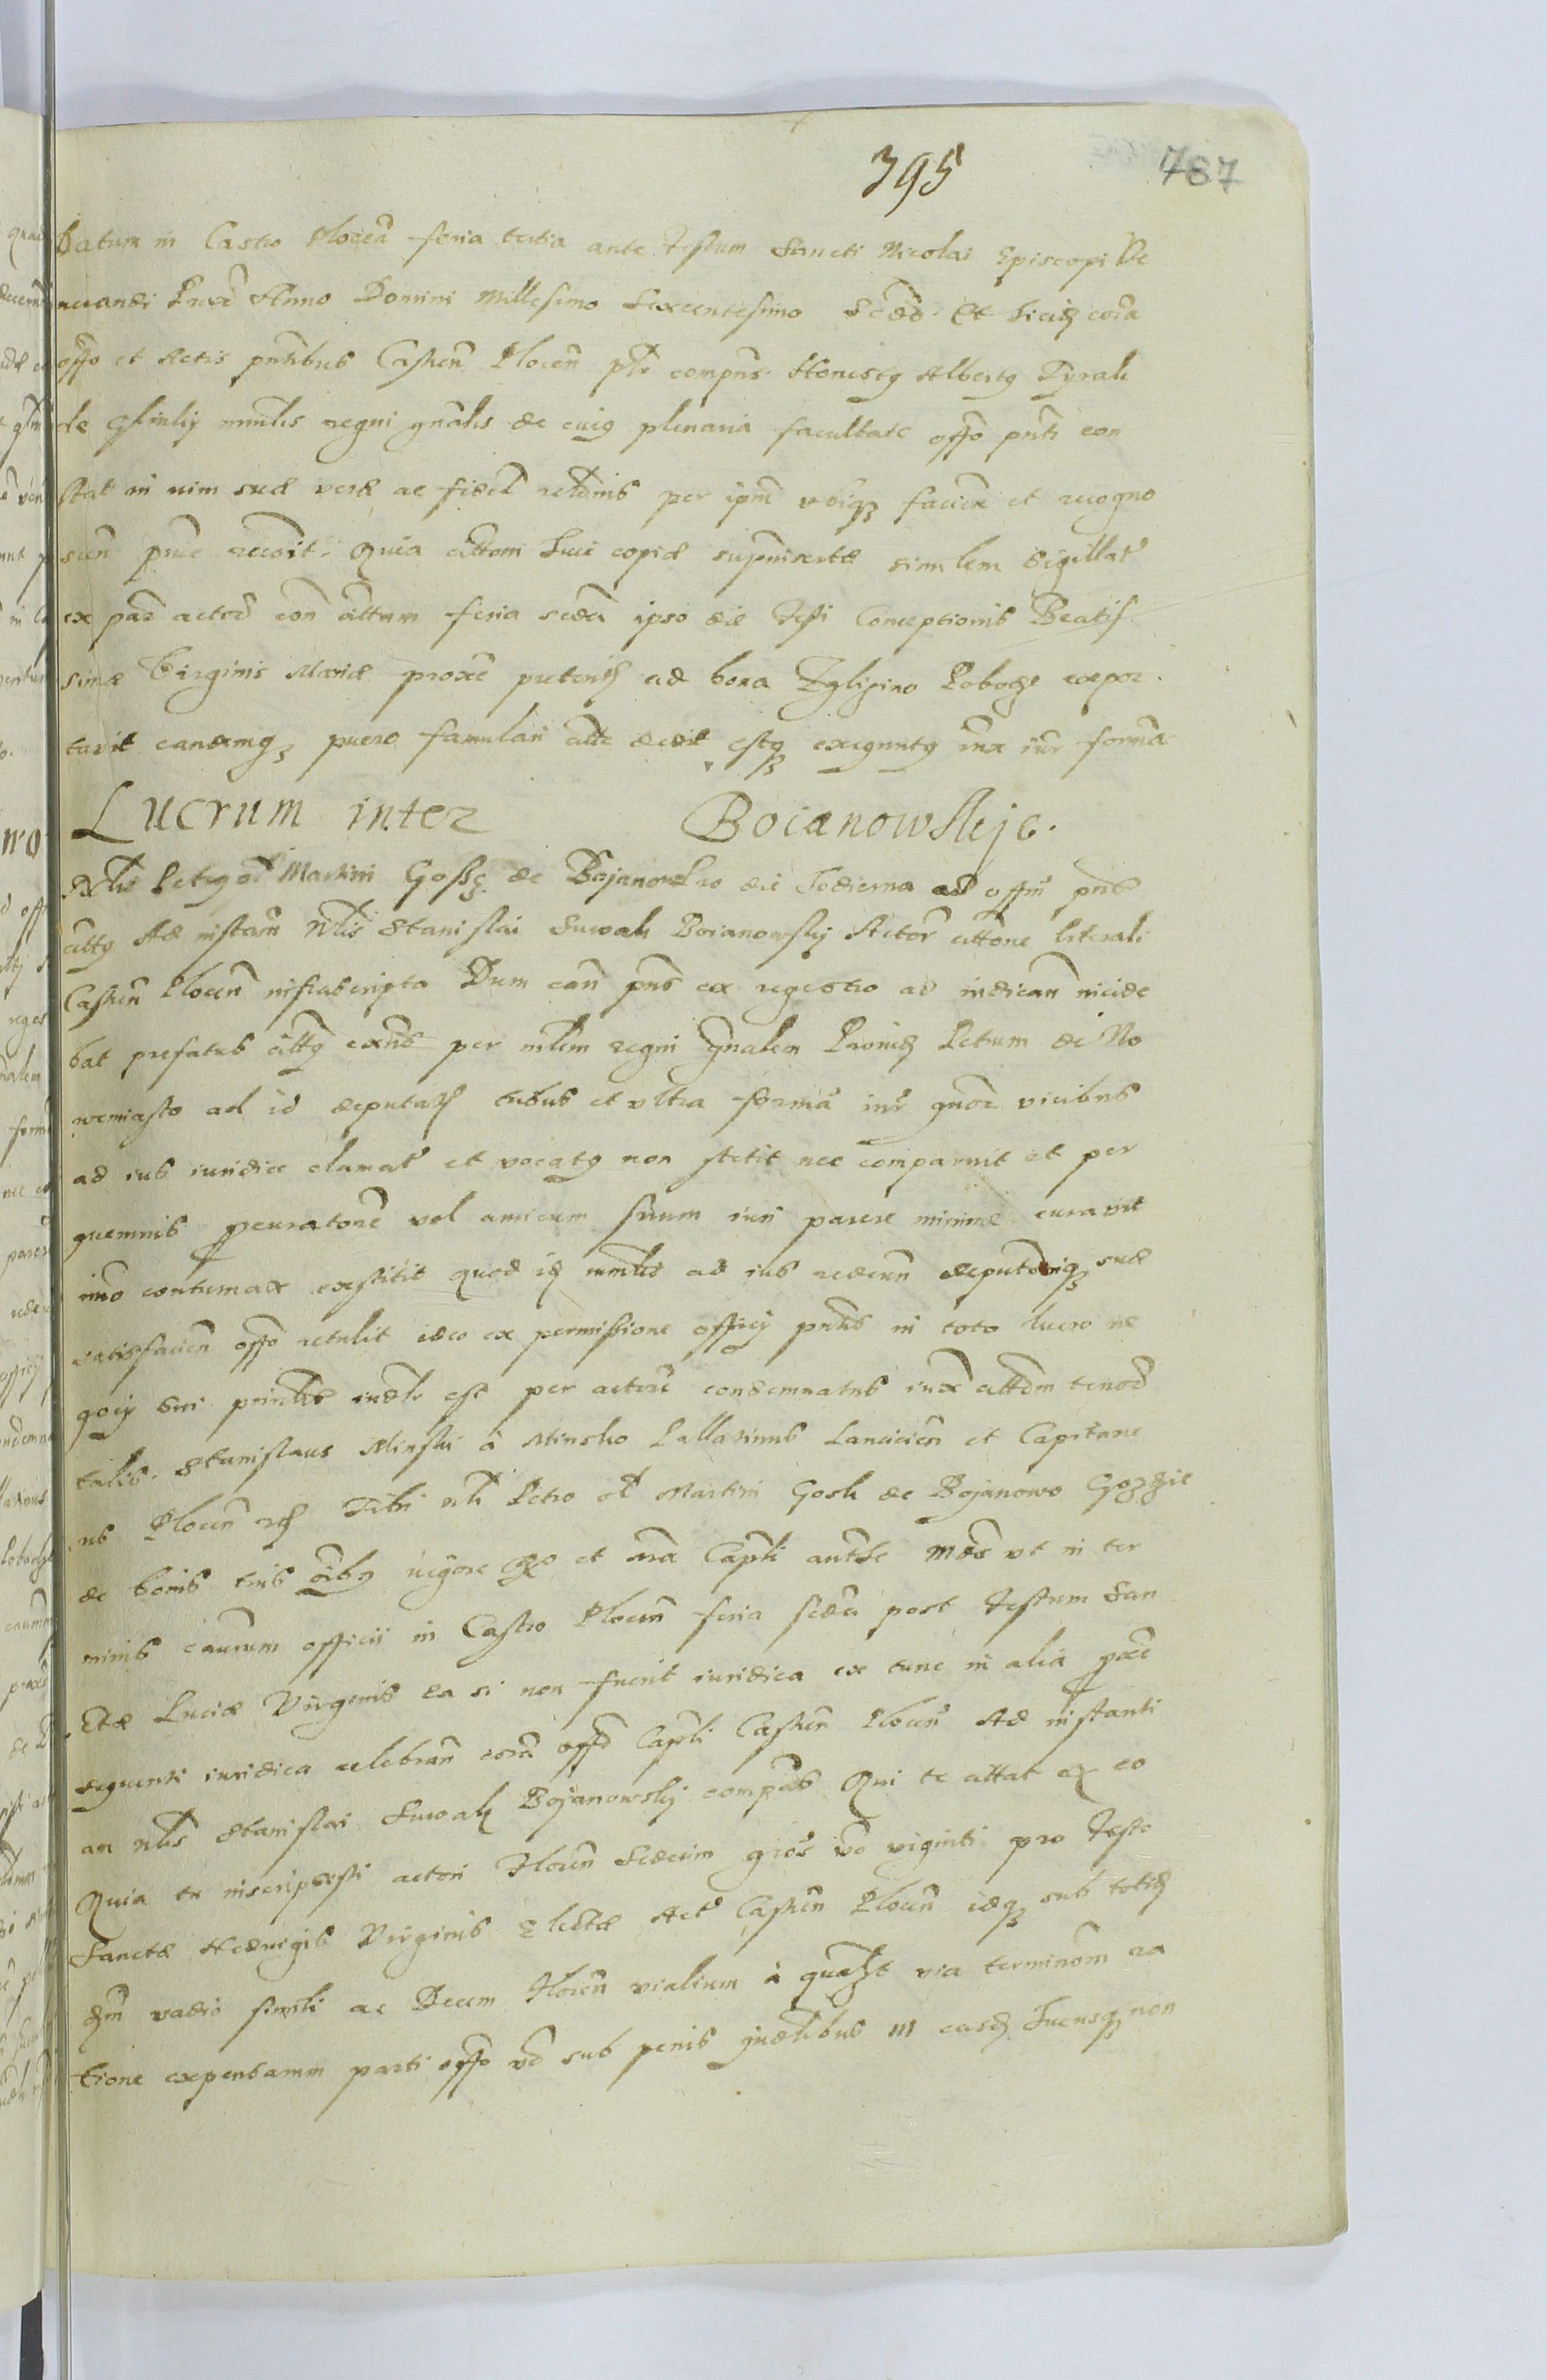 395
787
Datum in Castro Plocen feria tertia ante Festum Sancti Nicolai Episcopi Ve
nerandi Anno Domini Millesimo Sexcentesimo Et corã
offo et Actis pñtibus Castren Plocen plr compñs Honestg Albertg Tyrali
de mnlis regni gnãlis de cuig plenaria facultate offo pñti con
stat in vim suæ veræ ac fidel reloñis per ipm vbiqz facien et recogno
scen recoit. Quia citoni copiæ similem Sigillat
ex par actor con cittum feria scda ipso die Festi Conceptionis Beatis
simæ Virginis Mariæ proxe preterith ad bona Zglipino Pobodze
tavit eandemqz puero famulari citte dedit estqz iux iur formã
Lucrum inter Boianowskie.
Nlis Petrg ol Martini Gossz de Bojanowo die hodierna ad offm pñs
cittg Ad instan Nlis Stanislai Suwak Boianowskj Actor cittone literali
Castren Plocen infrascripta Dum eam pñs ex regestro ad iudicañ incide
bat prefatus cittg exñs per mlem regni gnalem Providz Petrum de No
wemiasto ad id deputatz tribus et vltra formã iur gnor vicibus
ad ius iuridice clamat et vocatg non stetit nec comparuit et per
quemuis pcuratore vel amicum suum iuri parere minime curavit
imo contumax exstitit quod idz mnlis ad ius redeun deputoniqz suæ
satisfacien offo retulit ideo ex permissione officy pñtis in toto lucro ne
gocy sui est per actore condemnatus iux cittom tenor
talis. Stanislaus Minski à Minsko Pallatinus Lancicien et Capitane
us Plocen rc Tibi nli Petro ol Martini Gosk de Bojanowo
de bonis tuis oibg vigore et mea Capli authe mds vt in ter
minis caurum officii in Castro Plocen feria scda post Festum San
ctæ Luciæ Virginis ea si non fuerit iuridica ex tunc in alia pxe
sequenti iuridica celebran corã offo Capli Castren Plocen Ad instanti
am nlis Stanislai Suwak Bojanowskj compeas Qui te cittat ex eo
Quia tu inscripsisti actori Floren Sedecim gros vo viginti pro Festo
Sanctæ Heduigis Virginis Electæ Act Castren Plocen idqz sub totidz
qm vadio simili ac Decem Floren vialium à via terminom ra
tione expensarum parti offo vo sub penis in easdz Luensqz non